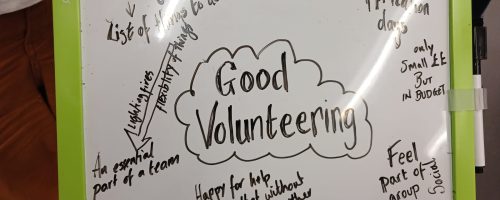 List of things to
days
only
small ££
BUT
IN BUDGET
Lighting fires
flexibility of things
Good
Volunteering
An essential
part of a team
Happy for help
that without
Feel
part of
group
Social